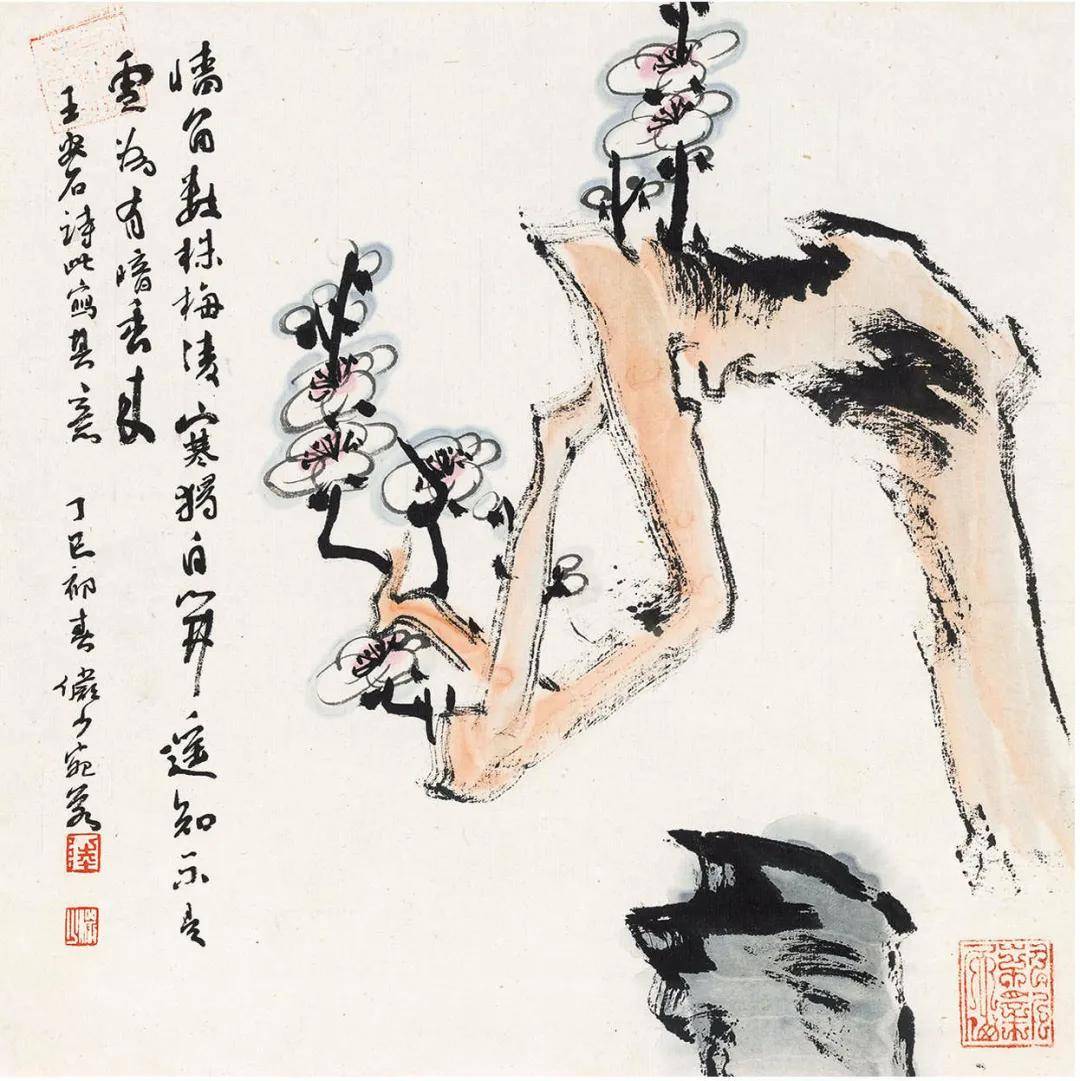 墻角數株梅凌寒獨自開遥知不是
雪為有暗香来
王安石詩此寫其意 丁巳初春 儼少宛若
陸